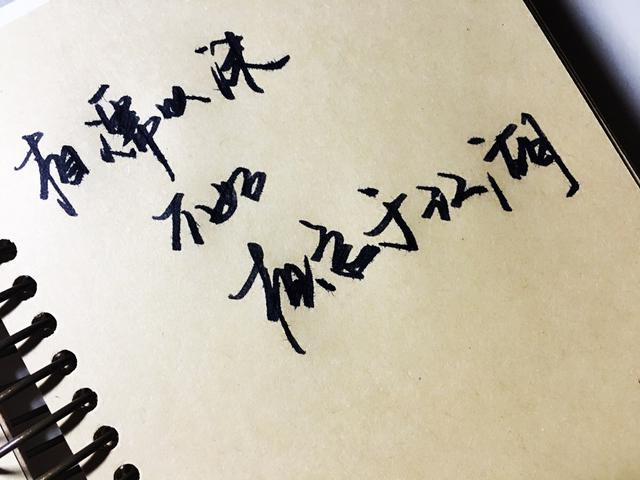 相濡以沫
不如
相忘于江湖